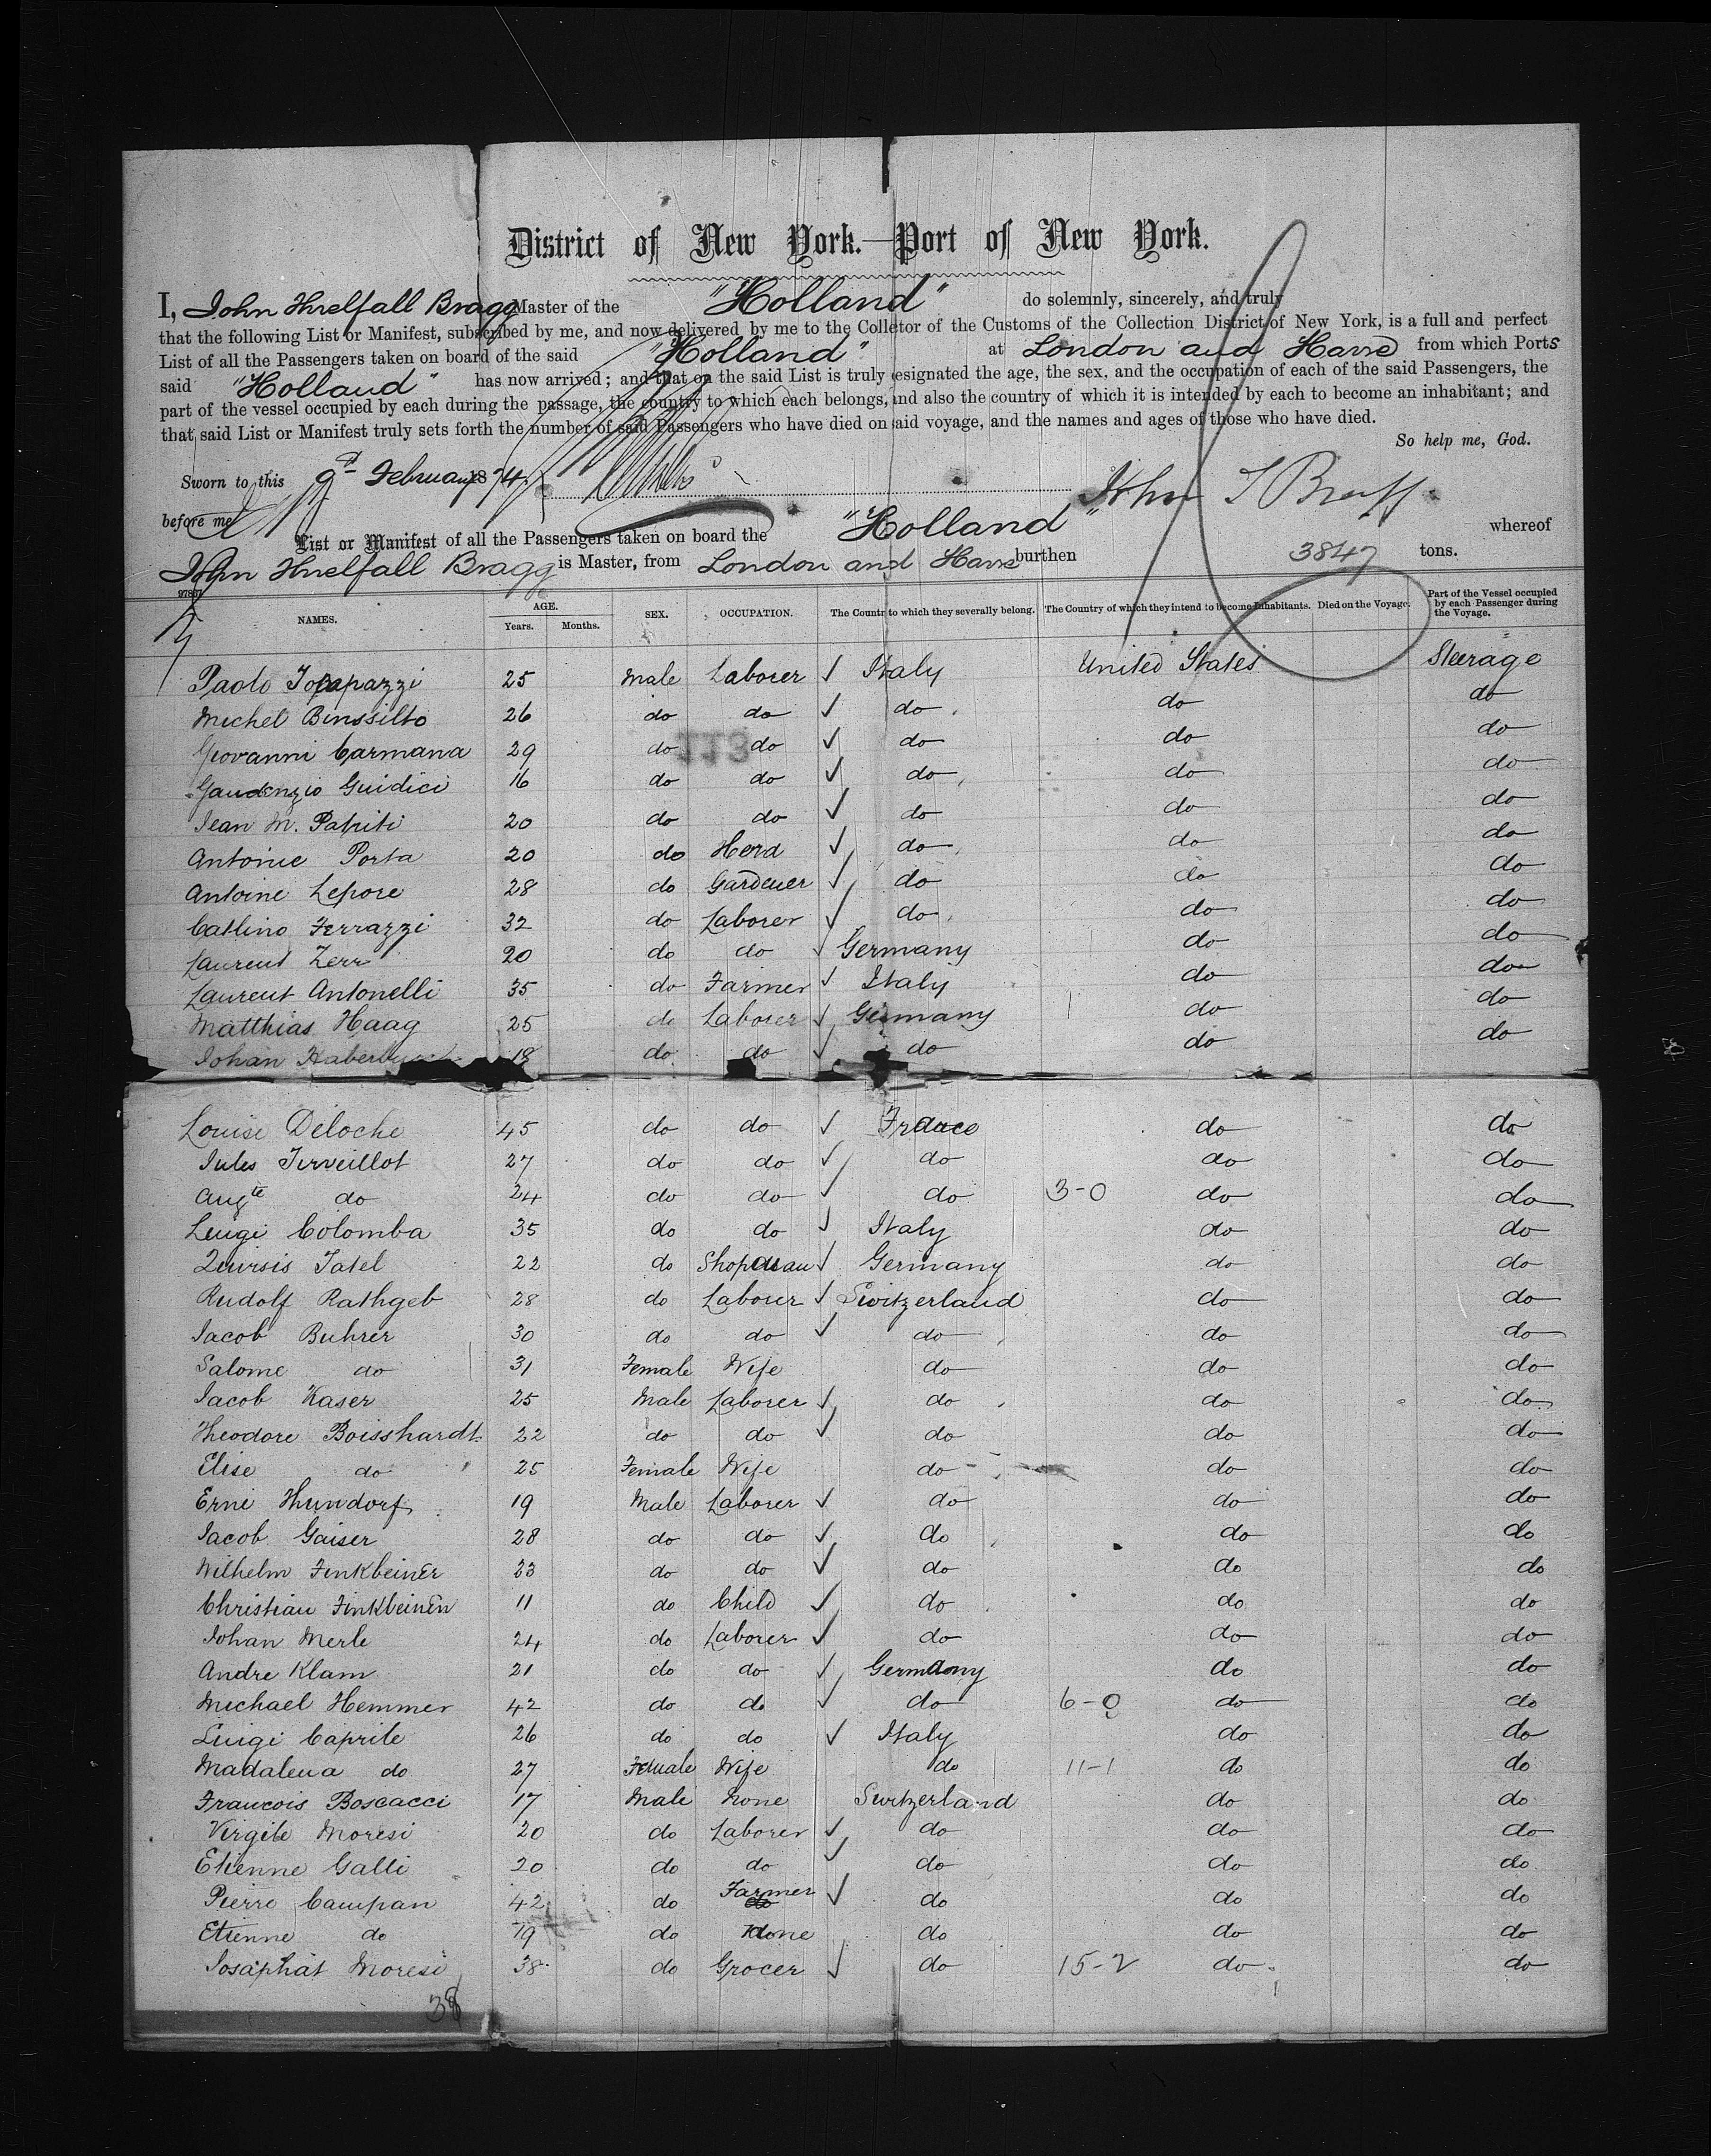 District of New York.—Port of New York.
I, John Threlfall Bragg Master of the "Holland" do solemnly, sincerely, and truly
that the following List or Manifest, subscribed by me, and now delivered by me to the Colletor of the Customs of the Collection District of New York, is a full and perfect
List of all the Passengers taken on board of the said "Holland" at London and Havre from which Ports
said "Holland" has now arrived; and that on the said List is truly esignated the age, the sex, and the occupation of each of the said Passengers, the
part of the vessel occupied by each during the passage, the country to which each belongs, and also the country of which it is intended by each to become an inhabitant; and
that said List or Manifest truly sets forth the number of said Passengers who have died on said voyage, and the names and ages of those who have died.
So help me, God.
Sworn to this 9th February 1874 John T Bragg
before me
List or Manifest of all the Passengers taken on board the "Holland" whereof
John Threlfall Bragg is Master, from London and Havre burthen 3847 tons.
NAMES. AGE. Years. Months. SEX. OCCUPATION. The Country to which they severally belong. The Country of which they intend to become Inhabitants. Died on the Voyage. Part of the Vessel occupied by each Passenger during the Voyage.
Paolo 25 Male Laborer Italy United States Steerage
Michel Binssilto 26 do do do do do
Giovanni Carmana 29 do do do do do
113
Gaudenzio Guidici 16 do do do do do
Jean M. Papiti 20 do do do do do
Antoine Porta 20 do Herd do do do
Antoine Lepore 28 do Gardener do do do
Catlino Ferrazzi 32 do Laborer do do do
Laurent Zerr 20 do do Germany do do
Laurent Antonelli 35 do Farmer Italy do do
Matthias Haag 25 do Laborer Germany do do
Johan 18 do do do do do
Louise Deloche 45 do do France do do
Jules Terveillot 27 do do do do do
Augte do 24 do do do 3-0 do do
Luigi Colomba 35 do do Italy do do
Quirsis Tatel 22 do Shopman Germany do do
Rudolf Rathgeb 28 do Laborer Switzerland do do
Jacob Buhrer 30 do do do do do
Salome do 31 Female Wife do do do
Jacob Kaser 25 Male Laborer do do do
Theodore Boisshardt 22 do do do do do
Elise do 25 Female Wife do do do
Erni Thundorf 19 Male Laborer do do do
Jacob Gaiser 28 do do do do do
Wilhelm Finkbeiner 23 do do do do do
Christian Finkbeinen 11 do Child do do do
Johan Merle 24 do Laborer do do do
Andre Klam 21 do do Germany do do
Michael Hemmer 42 do do do 6-0 do do
Luigi Caprile 26 do do Italy do do
Madalena do 27 Female Wife do 11-1 do do
Francois Boscacci 17 Male None Switzerland do do
Virgile Moresi 20 do Laborer do do do
Etienne Galli 20 do do do do do
Pierre Campan 42 do Farmer do do do
Etienne do 19 do None do do do
Josaphat Moresi 38 do Grocer do 15-2 do do
38